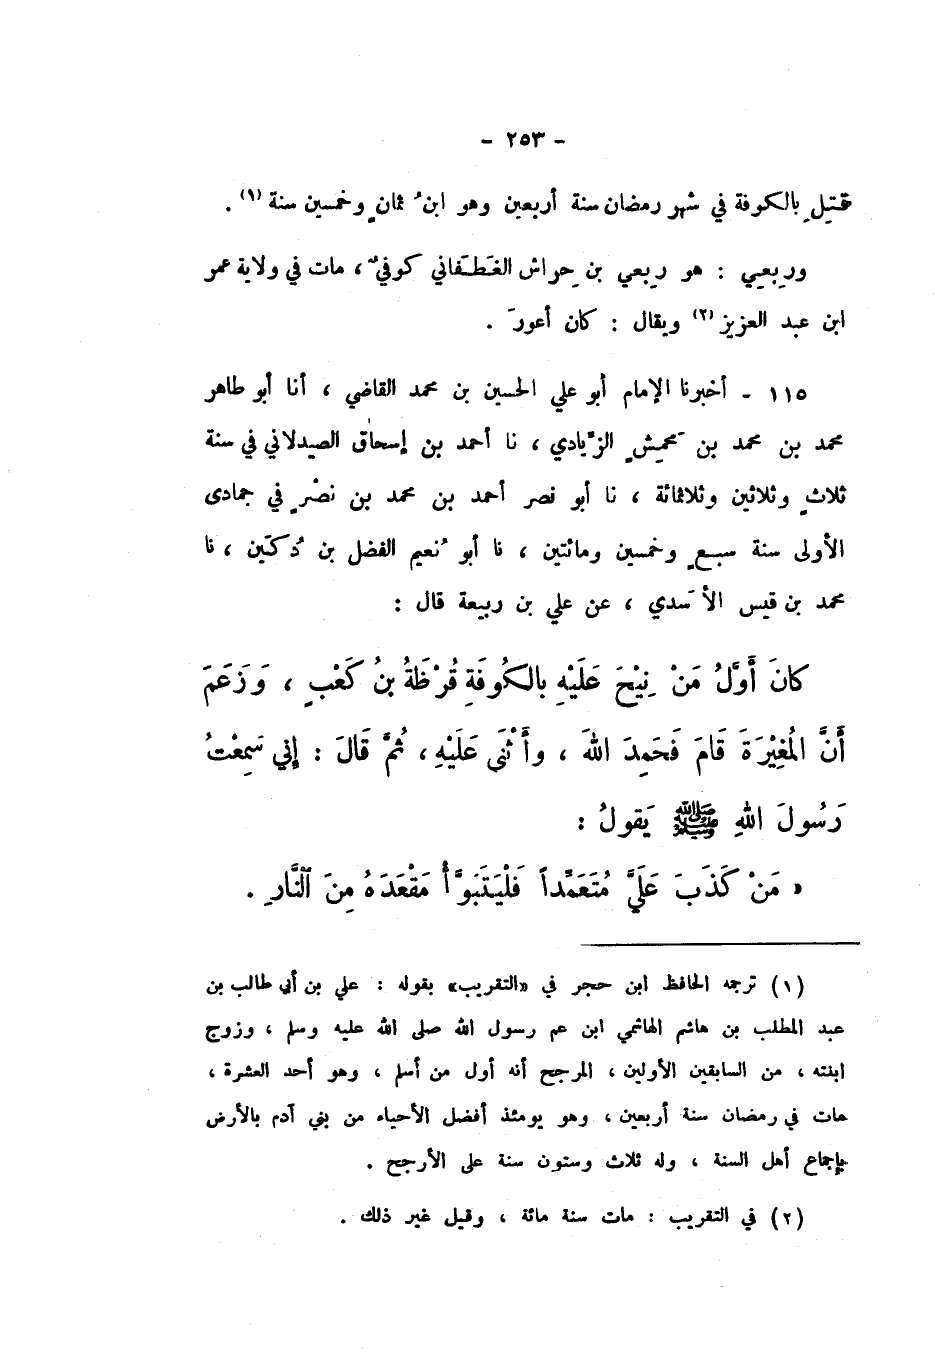 - ٢٥٣ -
قُتِلَ بالكوفة في شهر رمضان سنة أربعين وهو ابنُ ثمانٍ وخمسين سنة (١) .
ورِبعِي : هو رِبعي بن حِراش الغَطَفاني كوفيٌّ ، مات في ولاية عمر
ابن عبد العزيز (٢) ويقال : كان أعورَ .
١١٥ ـ أخبرنا الإمام أبو علي الحسين بن محمد القاضي ، أنا أبو طاهر
محمد بن محمد بن مَحمِشٍ الزِّيادي ، نا أحمد بن إسحاق الصيدلاني في سنة
ثلاثٍ وثلاثين وثلاثمائة ، نا أبو نصر أحمد بن محمد بن نصْرٍ في جمادى
الأولى سنة سبعٍ وخمسين ومائتين ، نا أبو نُعيم الفضل بن دُكَين ، نا
محمد بن قيس الأَسدي ، عن علي بن ربيعة قال :
كانَ أَوَّلُ مَنْ نِيْحَ عَلَيْهِ بالكُوفَةِ قُرْظَةُ بنُ كَعْبٍ ، وَزَعَمَ
أَنَّ المُغِيْرَةَ قَامَ فَحَمِدَ اللهَ ، وأَثْنَى عَلَيْهِ ، ثُمَّ قَالَ : إني سَمِعْتُ
رَسُولَ اللهِ ﷺ يَقولُ :
« مَنْ كَذَبَ عَلَيَّ مُتَعَمِّداً فَلْيَتَبَوَّأْ مَقْعَدَهُ مِنَ النَّارِ .
(١) ترجمه الحافظ ابن حجر في «التقريب» بقوله : علي بن أبي طالب بن
عبد المطلب بن هاشم الهاشمي ابن عم رسول الله صلى الله عليه وسلم ، وزوج
ابنته ، من السابقين الأولين ، المرجح أنه أول من أسلم ، وهو أحد العشرة ،
مات في رمضان سنة أربعين ، وهو يومئذ أفضل الأحياء من بني آدم بالأرض
بإجماع أهل السنة ، وله ثلاث وستون سنة على الأرجح .
(٢) في التقريب : مات سنة مائة ، وقيل غير ذلك .